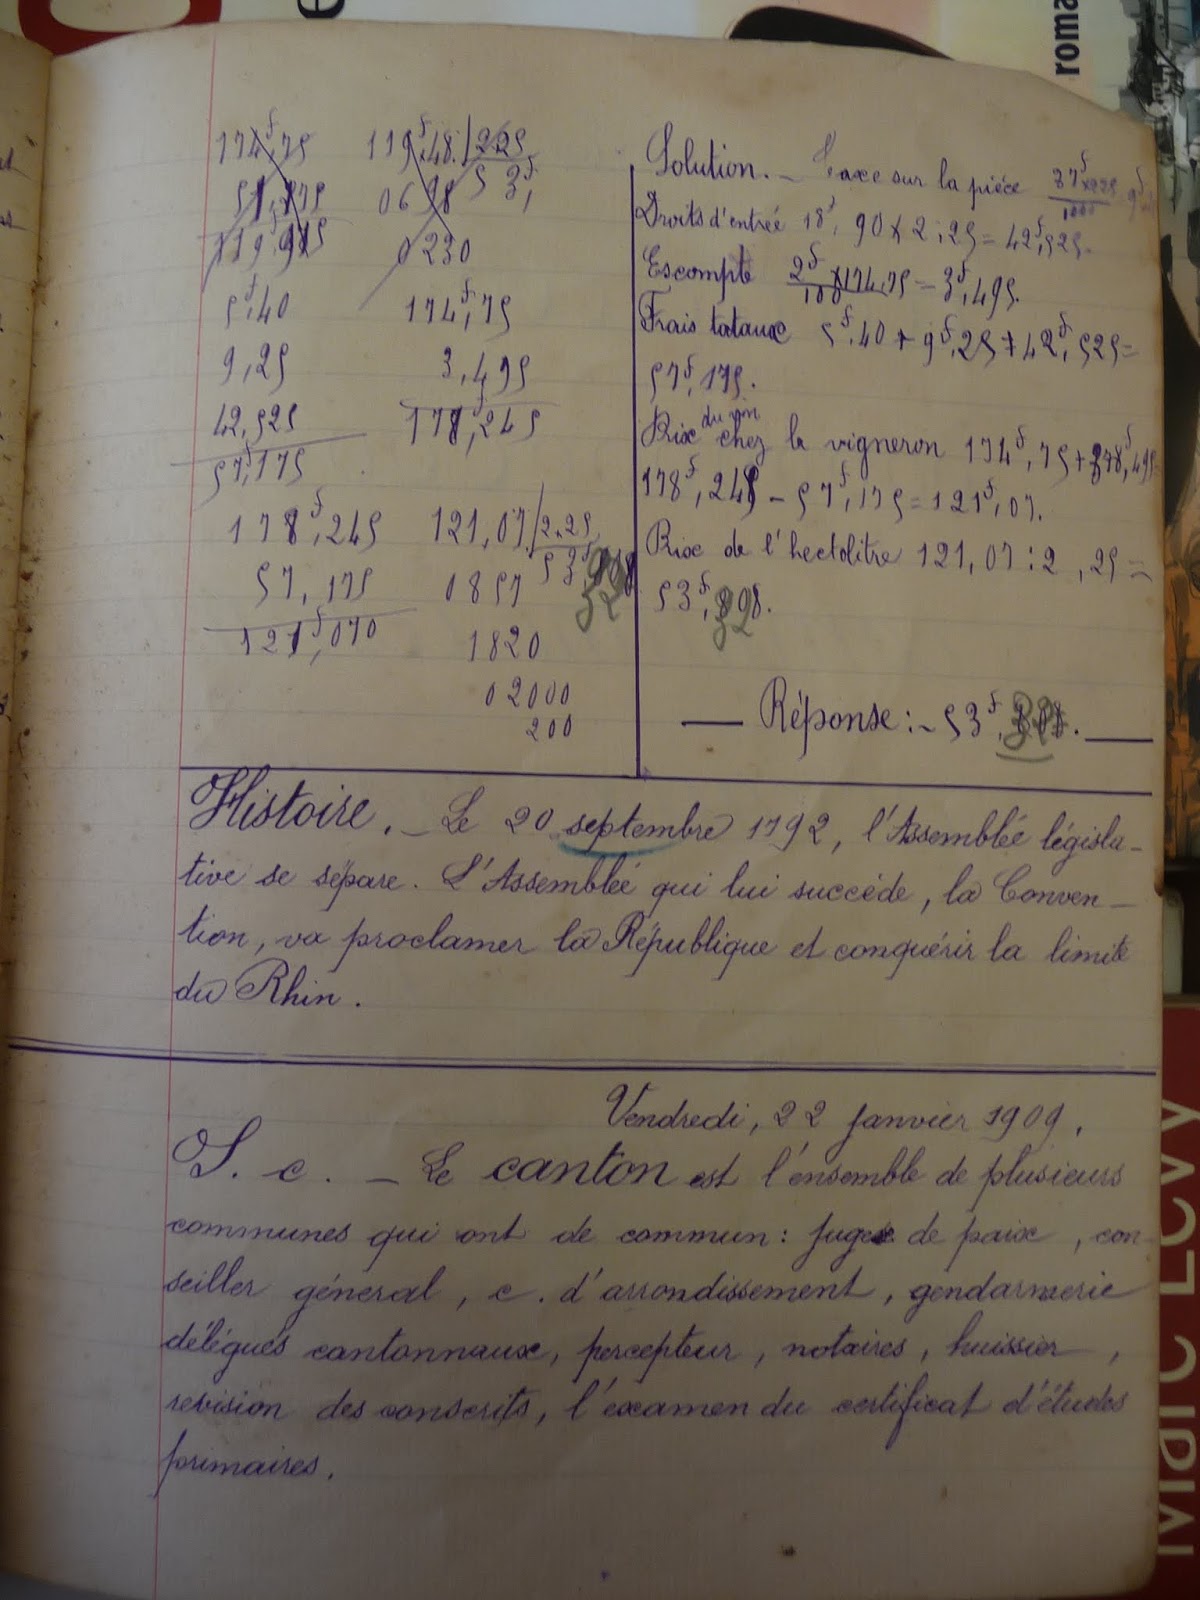 roma
174f,75
51,775
119,975
5f,40
9,25
42,525
57f,175
178f,245
57,175
121f,070
119f,48 | 2,25
0698 53f,
0230
174f,75
3,495
178f,245
121,07 | 2,25
0857 53f,
1820
02000
200
Solution. — Taxe sur la pièce 37f × 225 / 1000 9f
Droits d'entrée 18f, 90 × 2,25 = 42f,525.
Escompte 2f × 174,75 / 100 = 3f,495.
Frais totaux 5f,40 + 9f,25 + 42f,525 =
57f,175.
Prix du vin chez le vigneron 174f,75 +
178f,245 – 57f,175 = 121f,07.
Prix de l'hectolitre 121,07 : 2,25 =
53f,
— Réponse : – 53f, . —
Histoire. — Le 20 septembre 1792, l'Assemblée législa-
tive se sépare. L'Assemblée qui lui succède, la Conven-
tion, va proclamer la République et conquérir la limite
du Rhin.
Vendredi, 22 janvier 1909.
I. c. — Le canton est l'ensemble de plusieurs
communes qui ont de commun : juge de paix, con-
seiller général, c. d'arrondissement, gendarmerie
délégués cantonnaux, percepteur, notaires, huissier,
revision des conscrits, l'examen du certificat d'études
primaires.
Marc Levy